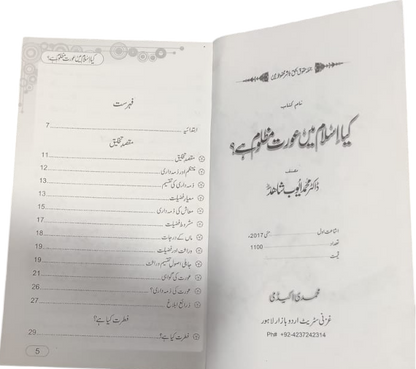 جملہ حقوق بحق ناشر محفوظ ہیں
نام کتاب
کیا اسلام میں عورت مظلوم ہے؟
مصنف
ڈاکٹر محمد ایوب شاھد
اشاعت اول مئی 2017ء
تعداد 1100
قیمت
محمدی اکیڈمی
غزنی سٹریٹ اردو بازار لاہور
Ph# +92-4237242314
کیا اسلام میں عورت مظلوم ہے؟
فہرست
ابتدائیہ 7
مقصد تخلیق
مقصد تخلیق 11
12
ذمہ داری کی تقسیم 13
معیار فضیلت 13
معاش کی ذمہ داری 15
مشروط فضیلت 17
ماں کے درجات 18
وراثت اور فضیلت 19
جاہلی اصول تقسیم وراثت 19
عورت کی گواہی 21
عورت کی ذمہ داری؟ 26
ذرائع ابلاغ 27
فطرت کیا ہے؟
فطرت کیا ہے؟ 29
5